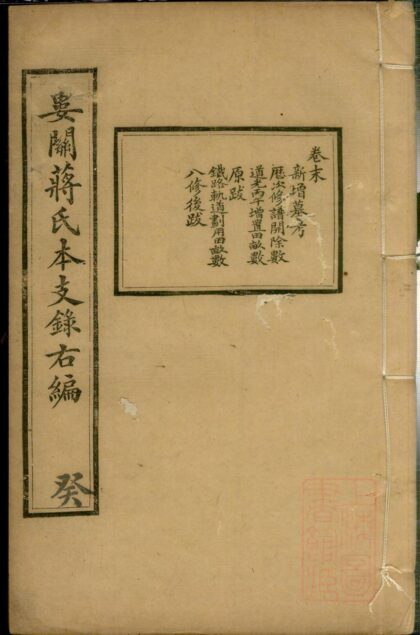 卷末
新增墓考
厯次修譜開除數
道光丙午增置田畝數
原跋
鐵路軌道劃用田畝數
八修後跋
婁關蔣氏本支錄右編 癸
上海圖
書館藏